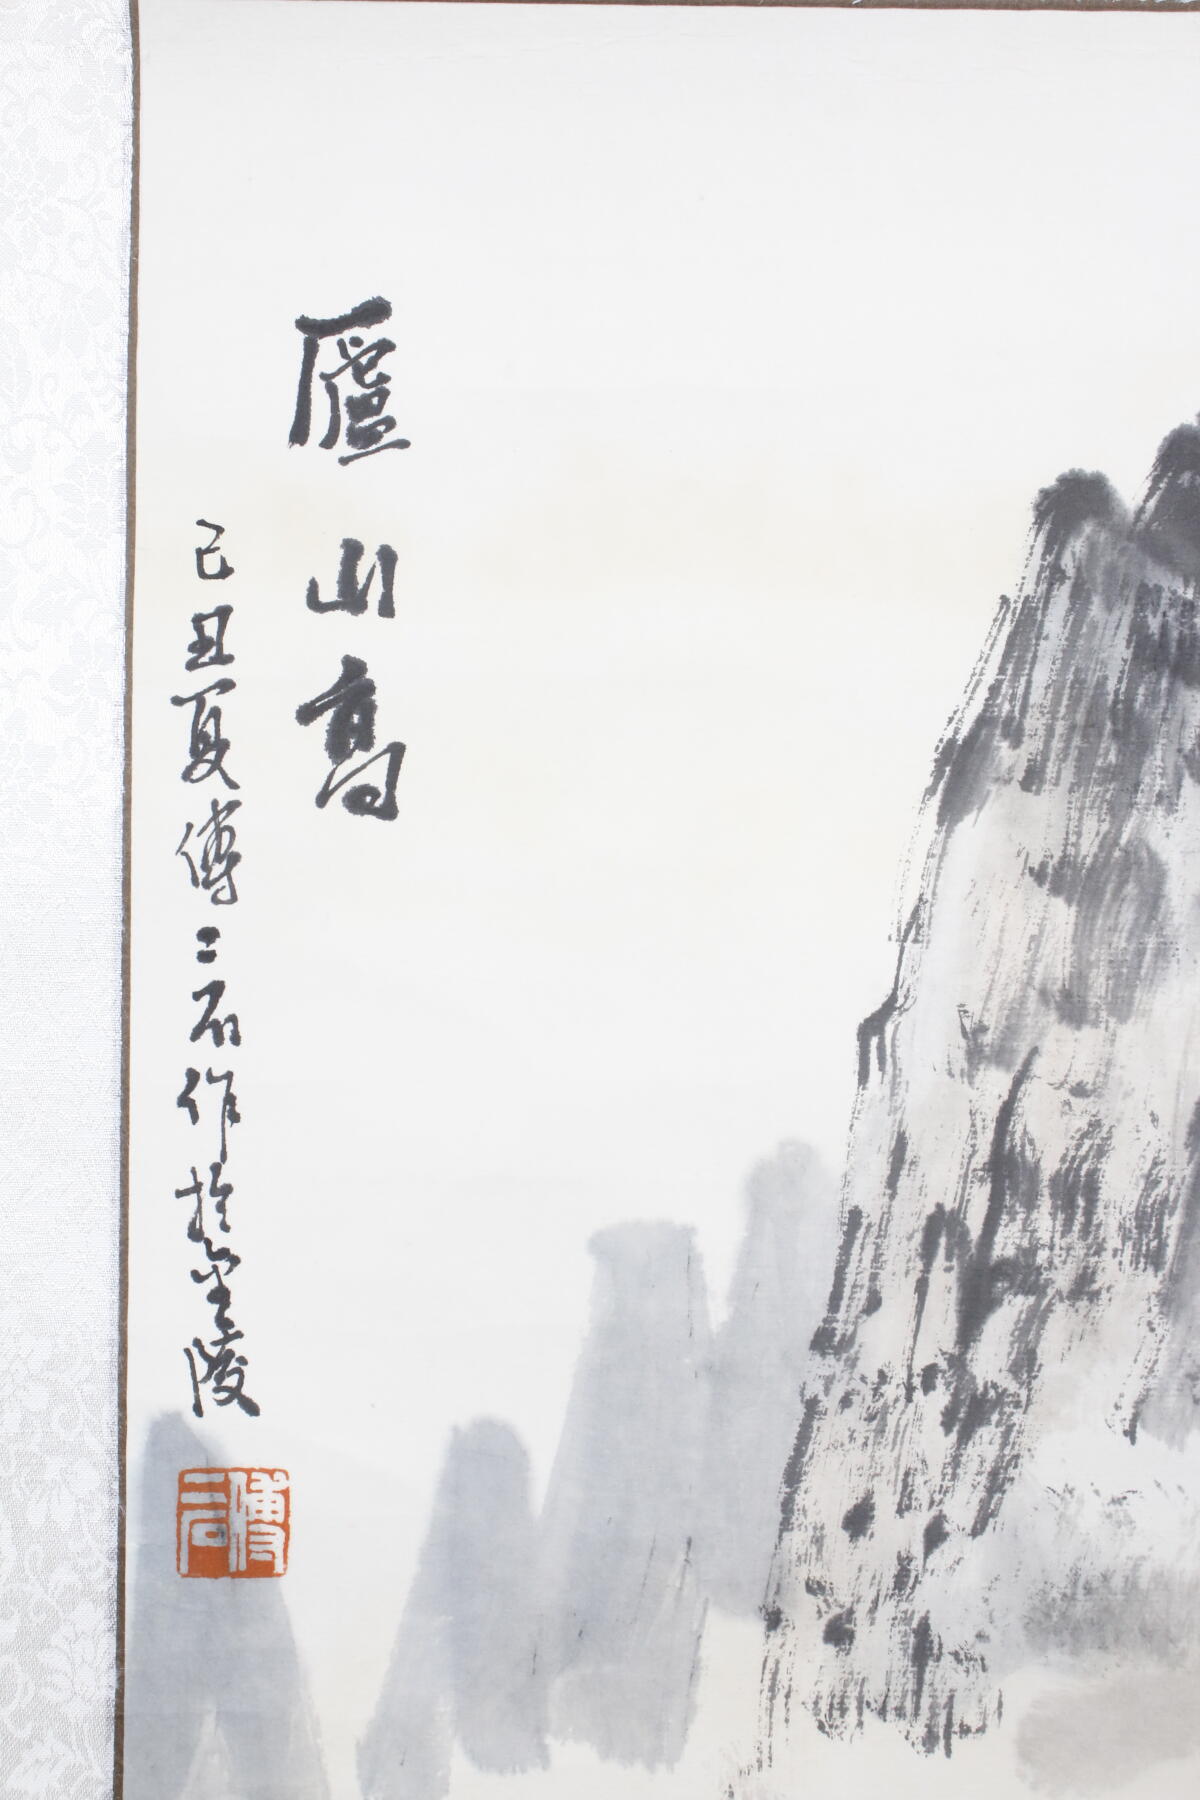 廬山高
己丑夏傅二石作於金陵
傅二石